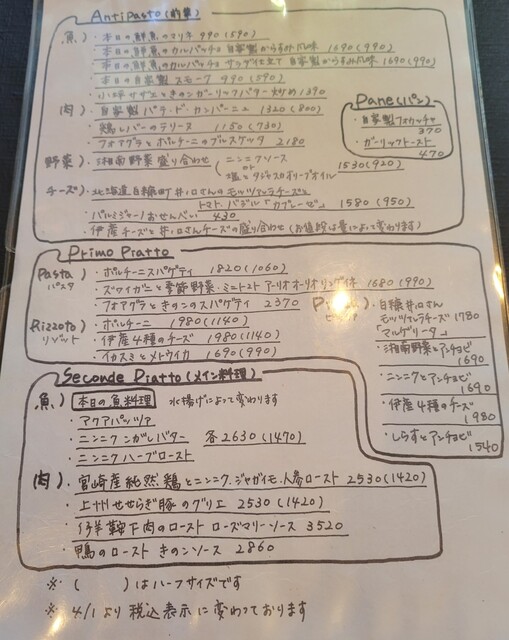 Antipasto(前菜)
魚) ・本日の鮮魚のマリネ 990(590)
・本日の鮮魚のカルパッチョ 自家製からすみ風味 1690(990)
・本日の鮮魚のカルパッチョ サラダ仕立て 自家製からすみ風味 1690(990)
・本日の自家製スモーク 990(590)
・小坪サザエときのこガーリックバター炒め 1390
肉) ・自家製パテ・ド・カンパーニュ 1320(800)
・鶏レバーのテリーヌ 1150(730)
・フォアグラとポルチーニのブルスケッタ 2180
野菜) ・湘南野菜盛り合わせ (ニンニクソース
塩とタジャスカオリーブオイル 1530(920)
チーズ) ・北海道白糠町 井ノ口さんのモッツァレラチーズと
トマト、バジル「カプレーゼ」 1580(950)
・パルミジャーノおせんべい 430
・伊産チーズと井ノ口さんチーズの盛り合わせ(お値段は量によって変わります)
Pane(パン)
・自家製フォカッチャ
370
・ガーリックトースト
470
Primo Piatto
Pasta) ・ポルチーニスパゲティ 1820(1060)
パスタ
・ズワイガニと季節野菜・ミニトマト アーリオオーリオリングイネ 1680(990)
・フォアグラときのこのスパゲティ 2370
Rizzoto) ・ポルチーニ 1980(1140)
リゾット
・伊産4種のチーズ 1980(1140)
・イカスミとメトウイカ 1690(990)
・白糠井ノ口さん
モッツァレラチーズ 1780
「マルゲリータ」
・湘南野菜とアンチョビ
1690
・ニンニクとアンチョビ
1690
・伊産4種のチーズ
1980
・しらすとアンチョビ
1540
Seconde Piatto(メイン料理)
魚) 本日の魚料理 水揚げによって変わります
・アクアパッツァ
・ニンニクこがしバター 各2630(1470)
・ニンニクハーブロースト
肉) ・宮崎産純然鶏とニンニク、ジャガイモ、人参ロースト 2530(1420)
・上州せせらぎ豚のグリエ 2530(1420)
・仔羊鞍下肉のロースト ローズマリーソース 3520
・鴨のロースト きのこソース 2860
※ ( )はハーフサイズです
※ 4/1より税込表示に変わっております